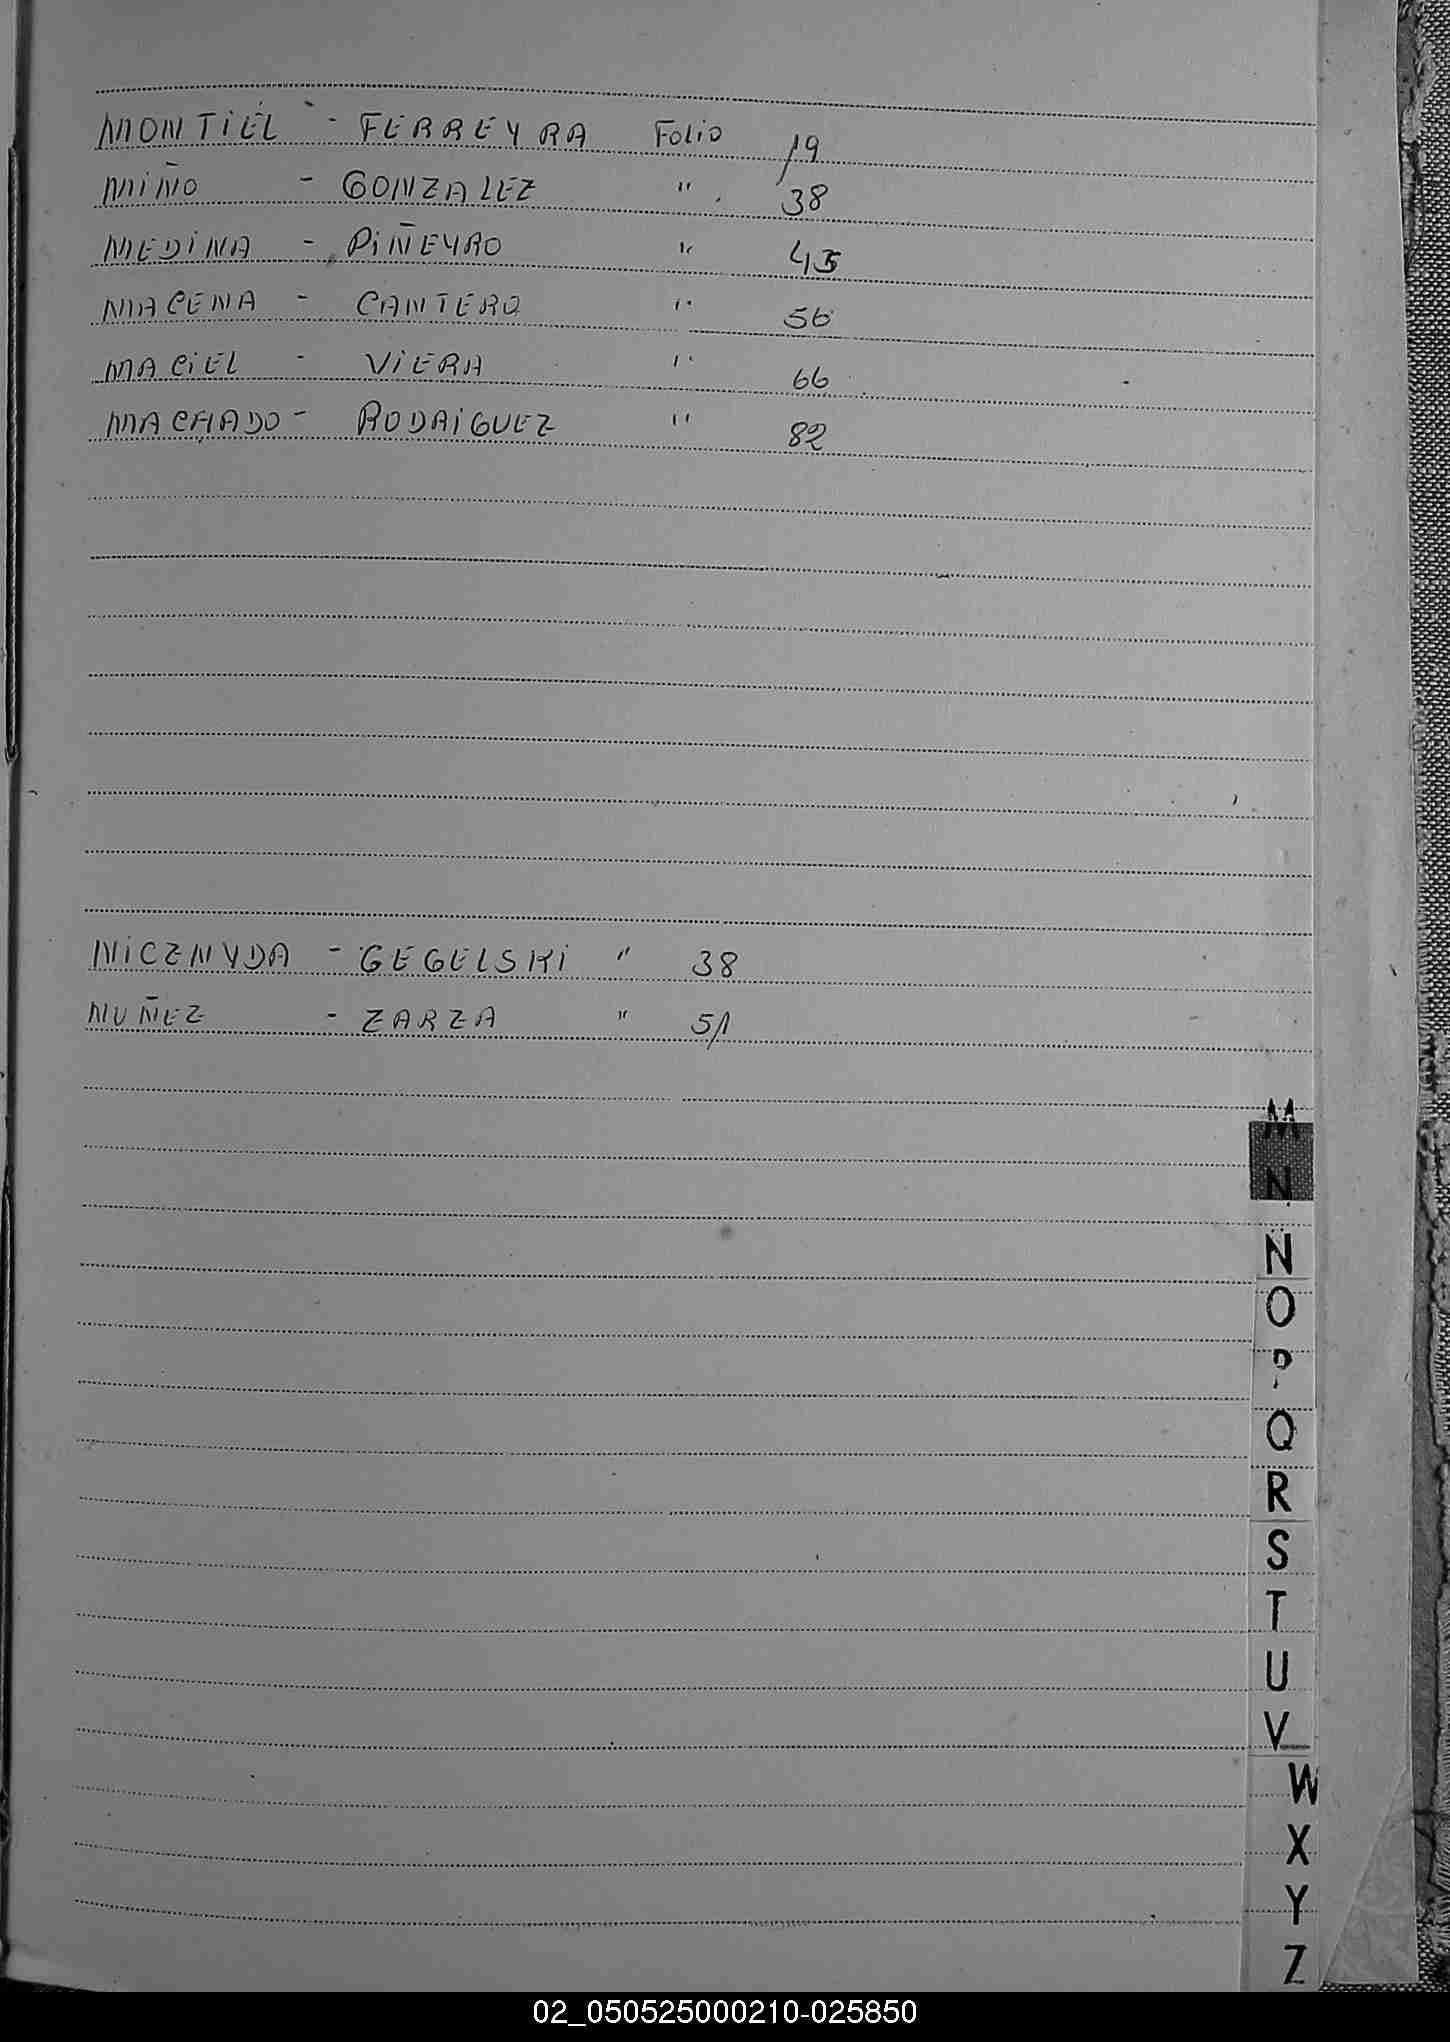 MONTIEL - FERREYRA Folio 19
MIÑO - GONZALEZ " 38
MEDINA - PIÑEYRO " 45
MACENA - CANTERO " 56
MACIEL - VIERA " 66
MACHADO - RODRIGUEZ " 82
NICZNYDA - GEGELSKI " 38
NUÑEZ - ZARZA " 51
M
N
Ñ
O
P
Q
R
S
T
U
V
W
X
Y
Z
02_050525000210-025850